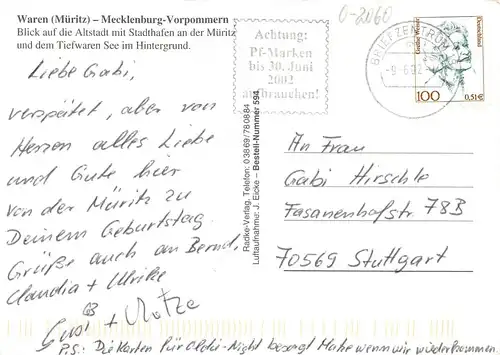 Waren (Müritz) – Mecklenburg-Vorpommern
Blick auf die Altstadt mit Stadthafen an der Müritz
und dem Tiefwaren See im Hintergrund.
Liebe Gabi,
verspätet, aber von
Herzen alles Liebe
und Gute hier
von der Müritz zu
Deinem Geburtstag.
Grüße auch an Bernd,
Claudia + Ulrike
Gusi + Motze
P.S.: Die Karten für Oldie-Night besorgt Mahe wenn wir wiederkommen
Achtung:
Pf-Marken
bis 30. Juni
2002
aufbrauchen!
0-2060
BRIEFZENTRUM
-9.6.02
Deutschland
100
0,51€
Radke-Verlag, Telefon: 03869/780884
Luftaufnahme: J. Eicke – Bestell-Nummer 594
An Frau
Gabi Hirschle
Fasanenhofstr 78B
70569 Stuttgart